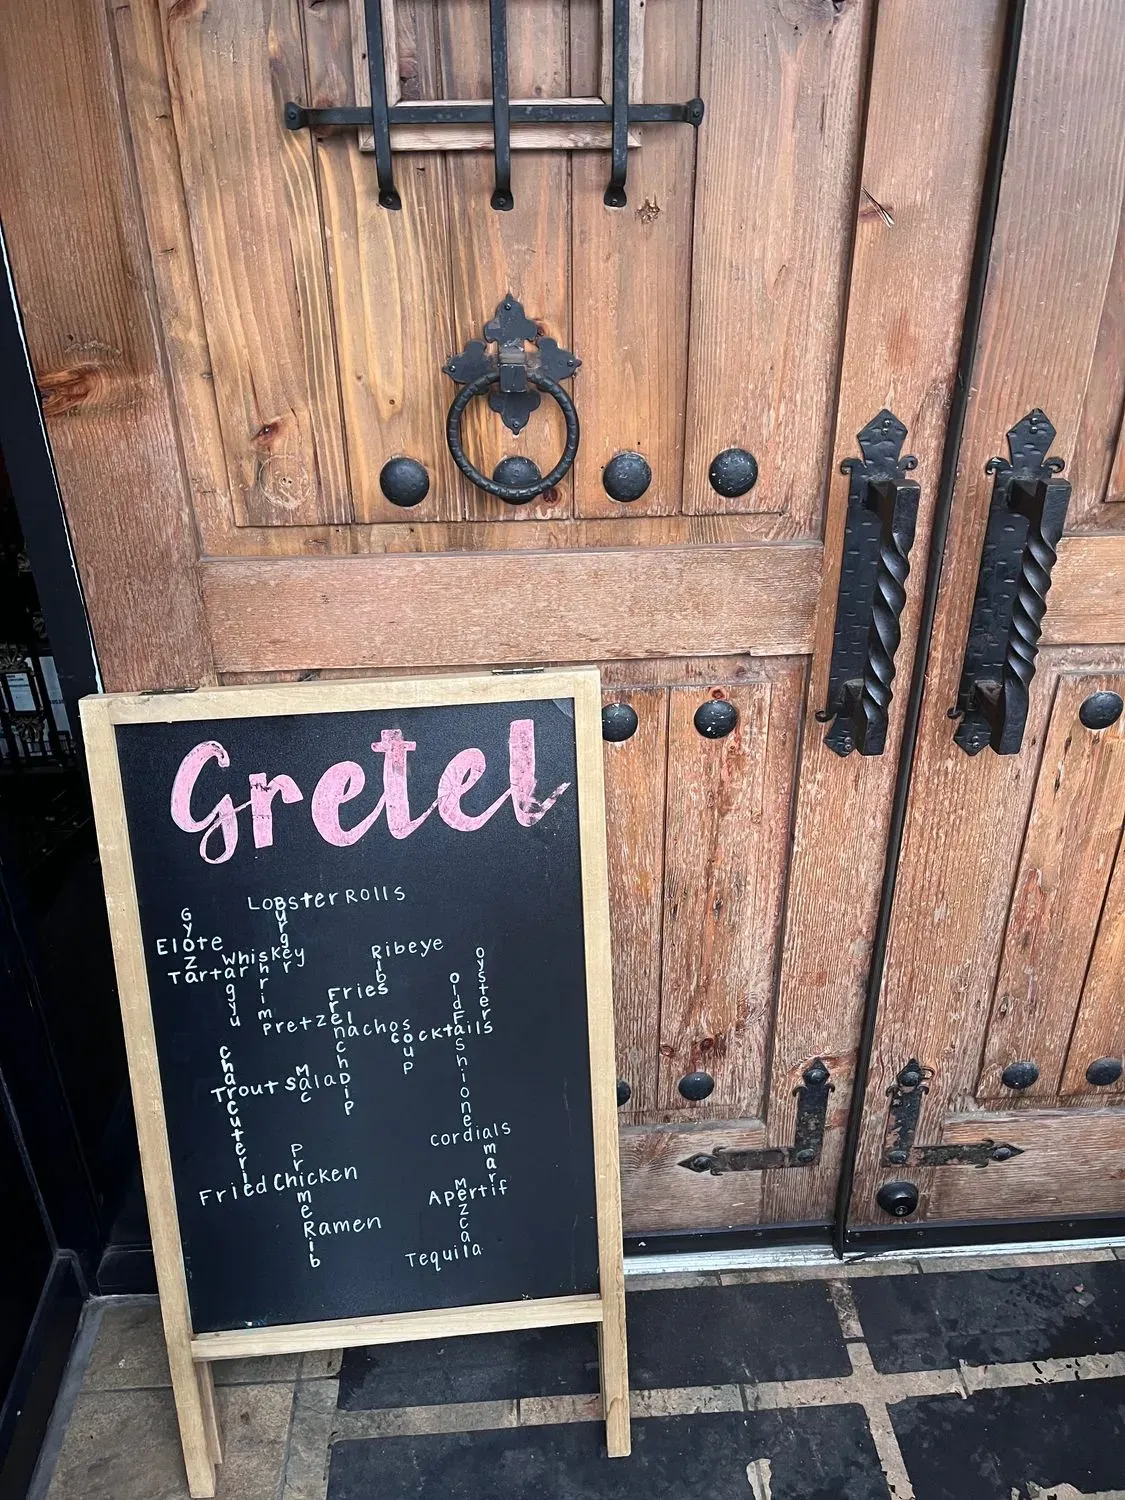 Gretel
Lobster Rolls
Burger
Gyoza
Elote
Whiskey
Tartar
Wagyu
Shrimp
Ribeye
Rib
Oyster
Fries
French Dip
Old Fashioned
Pretzel
nachos
cocktails
soup
Charcuterie
Trout Salad
Mac
Cordials
amari
Prime Rib
Fried Chicken
Apertif
Mezcal
Ramen
Tequila